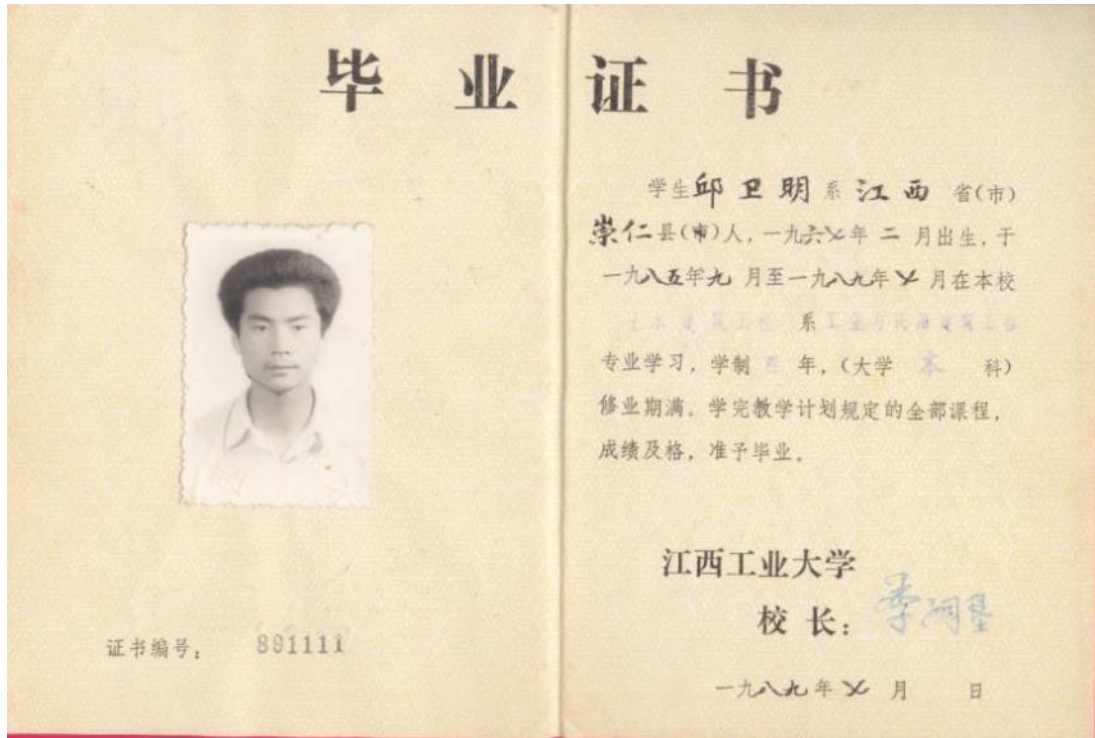 毕业证书
学生邱卫明系江西省(市)
崇仁县(市)人，一九六七年二月出生，于
一九八五年九月至一九八九年七月在本校
土木建筑工程系工业与民用建筑工程
专业学习，学制四年，(大学本科)
修业期满。学完教学计划规定的全部课程，
成绩及格，准予毕业。
江西工业大学
校长：李
一九八九年七月 日
证书编号：891111